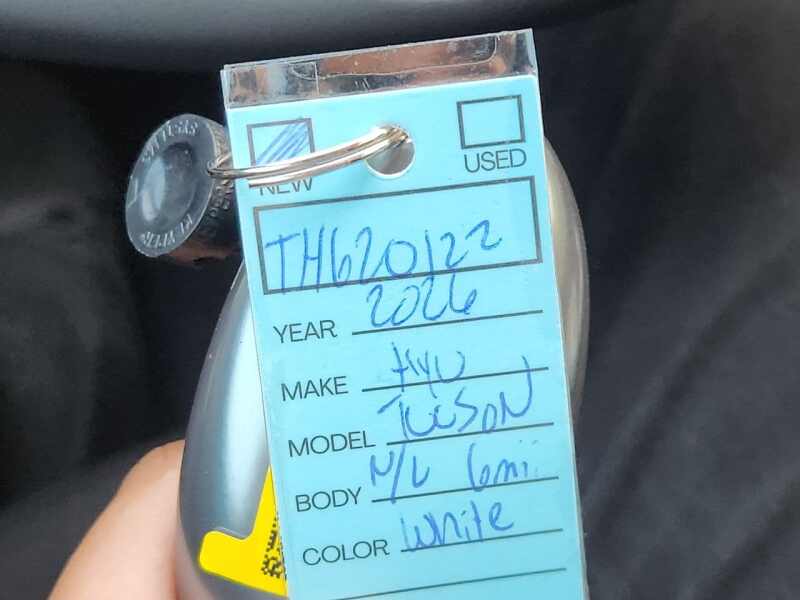 NEW
USED
TH620122
YEAR 2026
MAKE HYU
MODEL TUCSON
BODY N/L 6mi
COLOR White